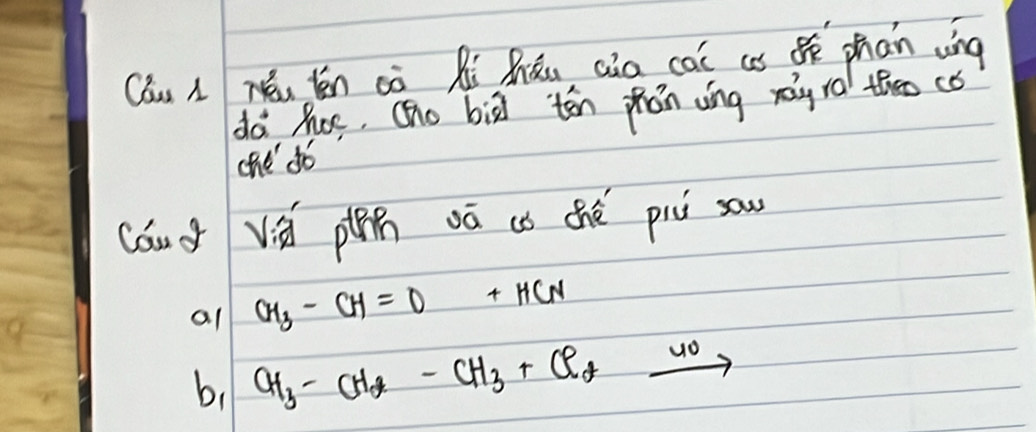 Câu 1 Nêu tên và kí hiệu của các cơ chế phản ứng
đã học. Cho biết tên phản ứng xảy ra theo cơ
chế đó
Câu 2 Viết ptph và cơ chế pư sau
a/ CH3 - CH = O + HCN
b, CH3 - CH2 - CH3 + Cl2 →